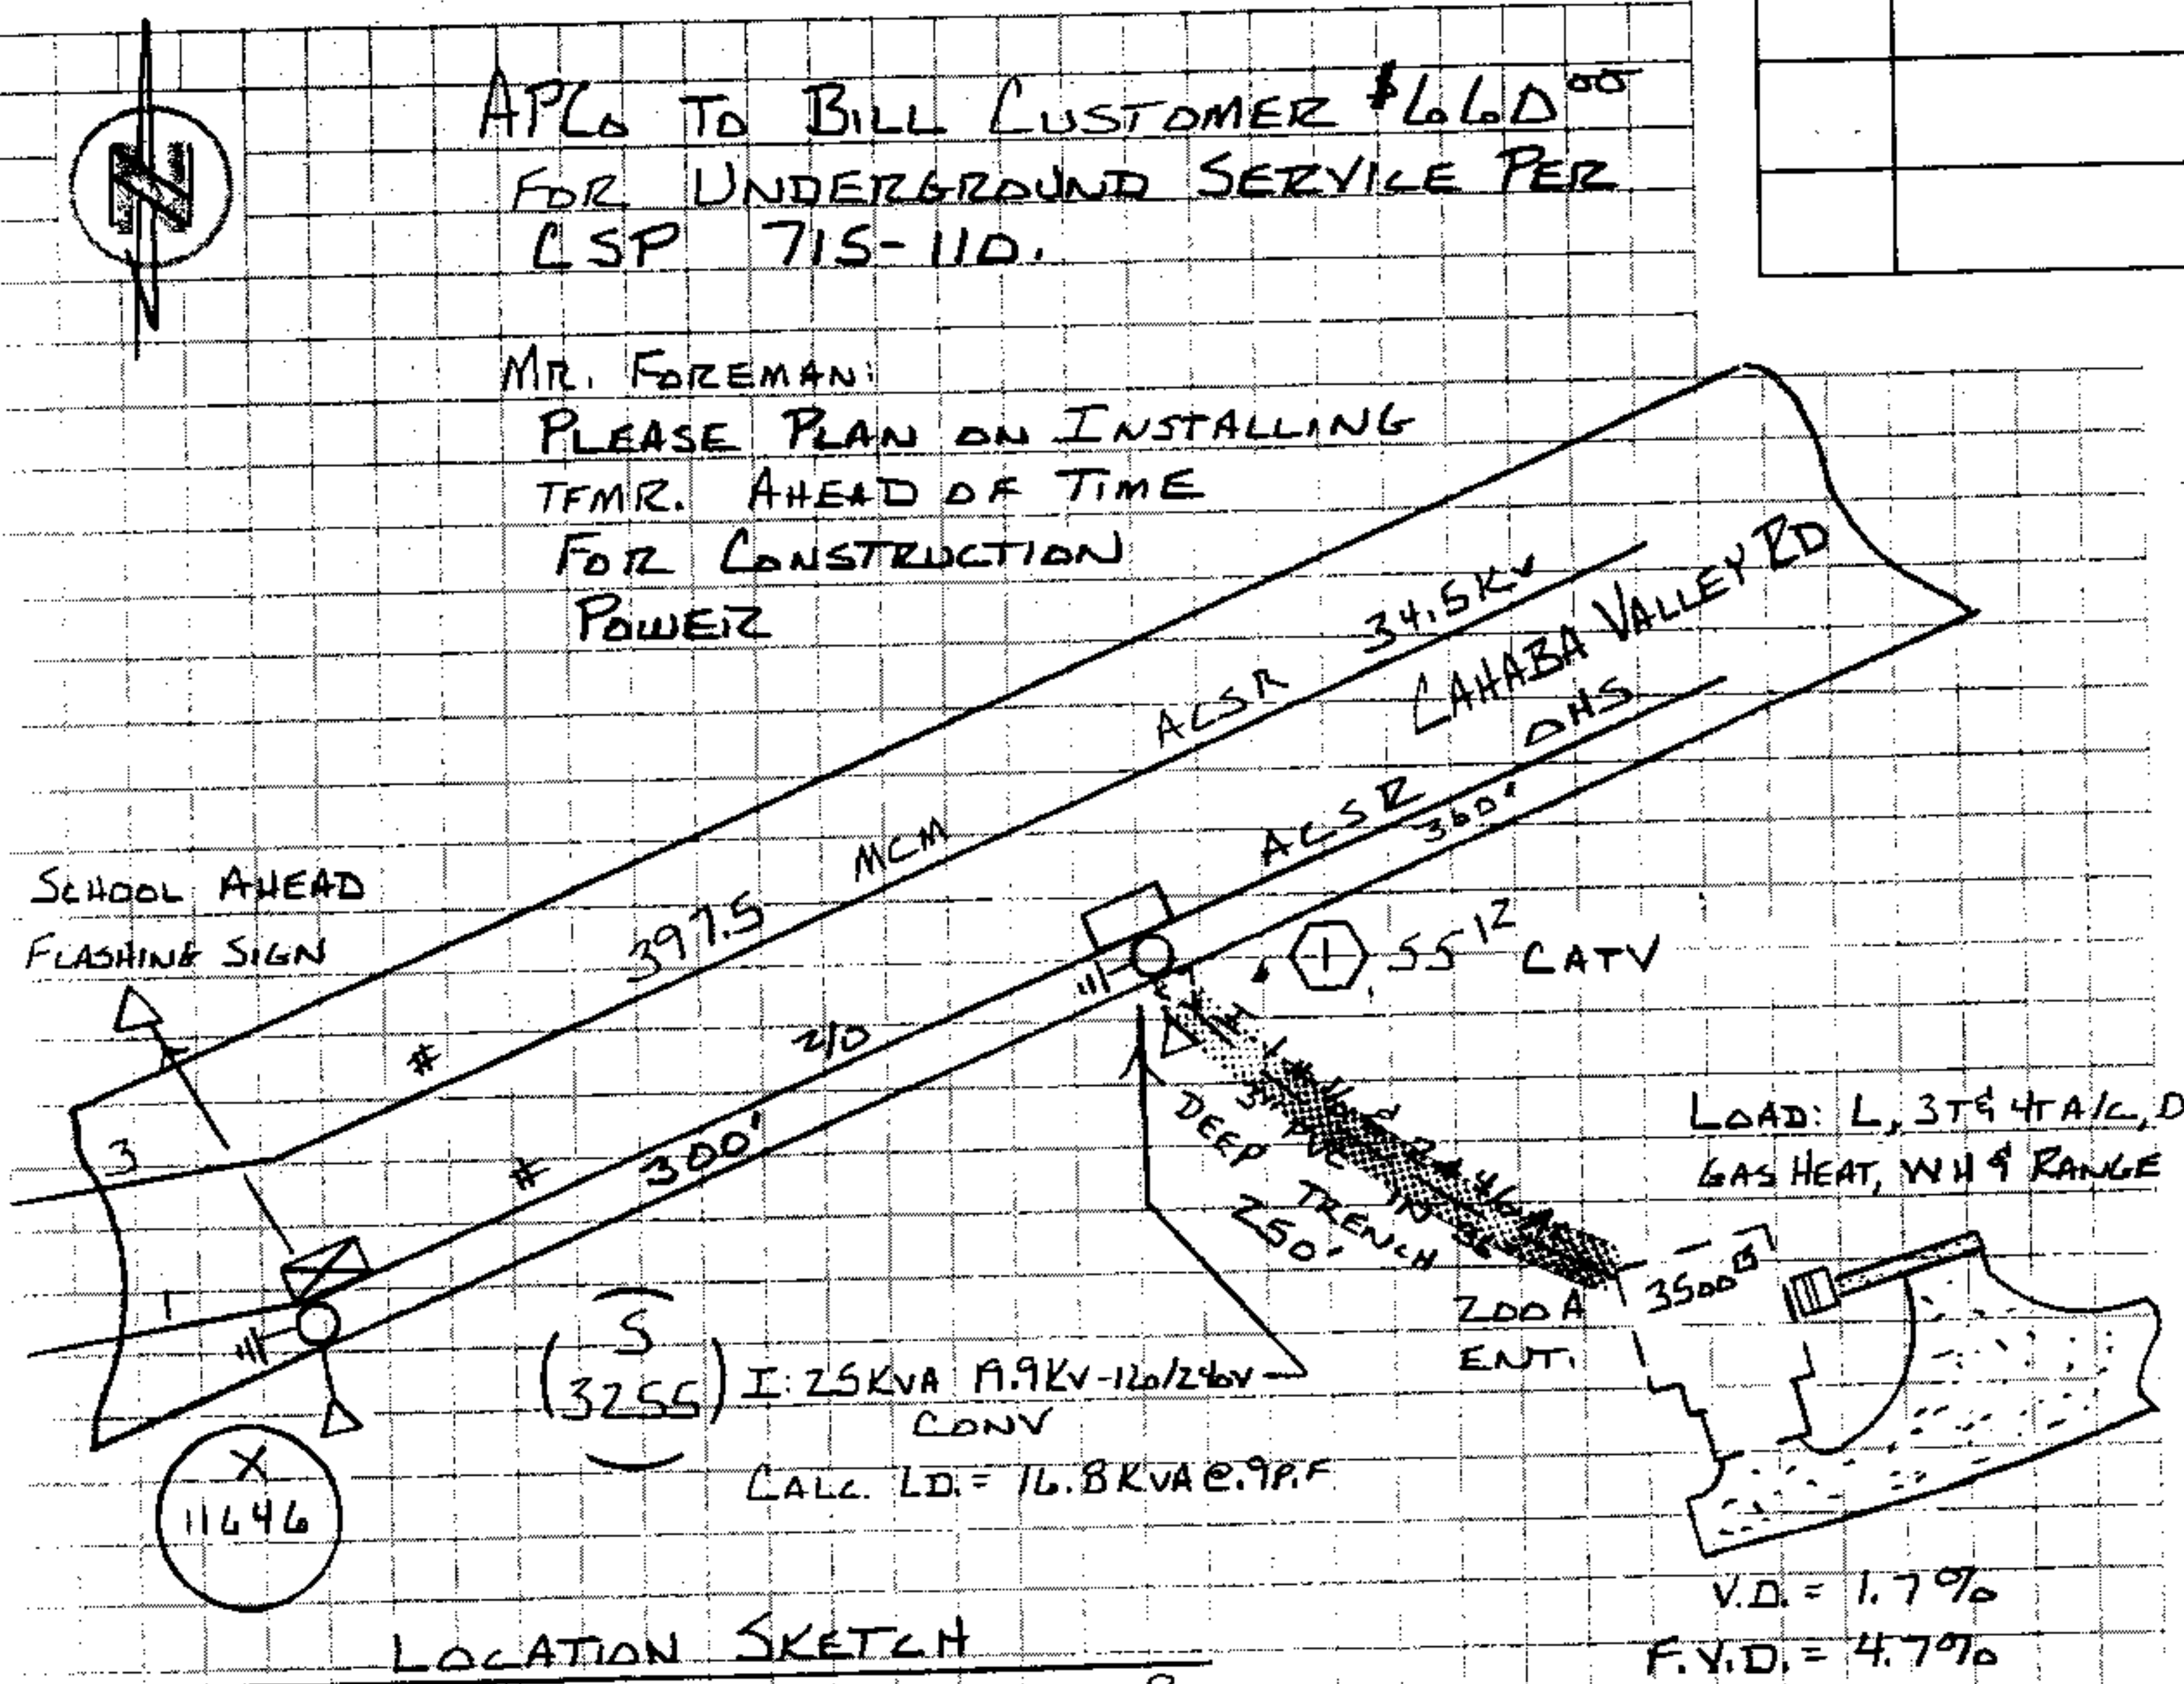 N
APCo To BILL CUSTOMER $660.00
FOR UNDERGROUND SERVICE PER
CSP 715-110.
MR. FOREMAN:
PLEASE PLAN ON INSTALLING
TFMR. AHEAD OF TIME
FOR CONSTRUCTION
POWER
3 # 397.5 MCM ACSR 34.5KV
CAHABA VALLEY RD
1 # 2/0 ACSR OHS
300' 360'
SCHOOL AHEAD
FLASHING SIGN
1 55 12 CATV
DEEP TRENCH
250'
LOAD: L, 3T & 4T A/C, D
GAS HEAT, WH & RANGE
200 A
ENT.
3500
S
3255
I: 25KVA 19.9KV-120/240V
CONV
CALC. LD. = 16.8 KVA @ .9 P.F.
X
11646
V.D. = 1.7%
F.V.D. = 4.7%
LOCATION SKETCH